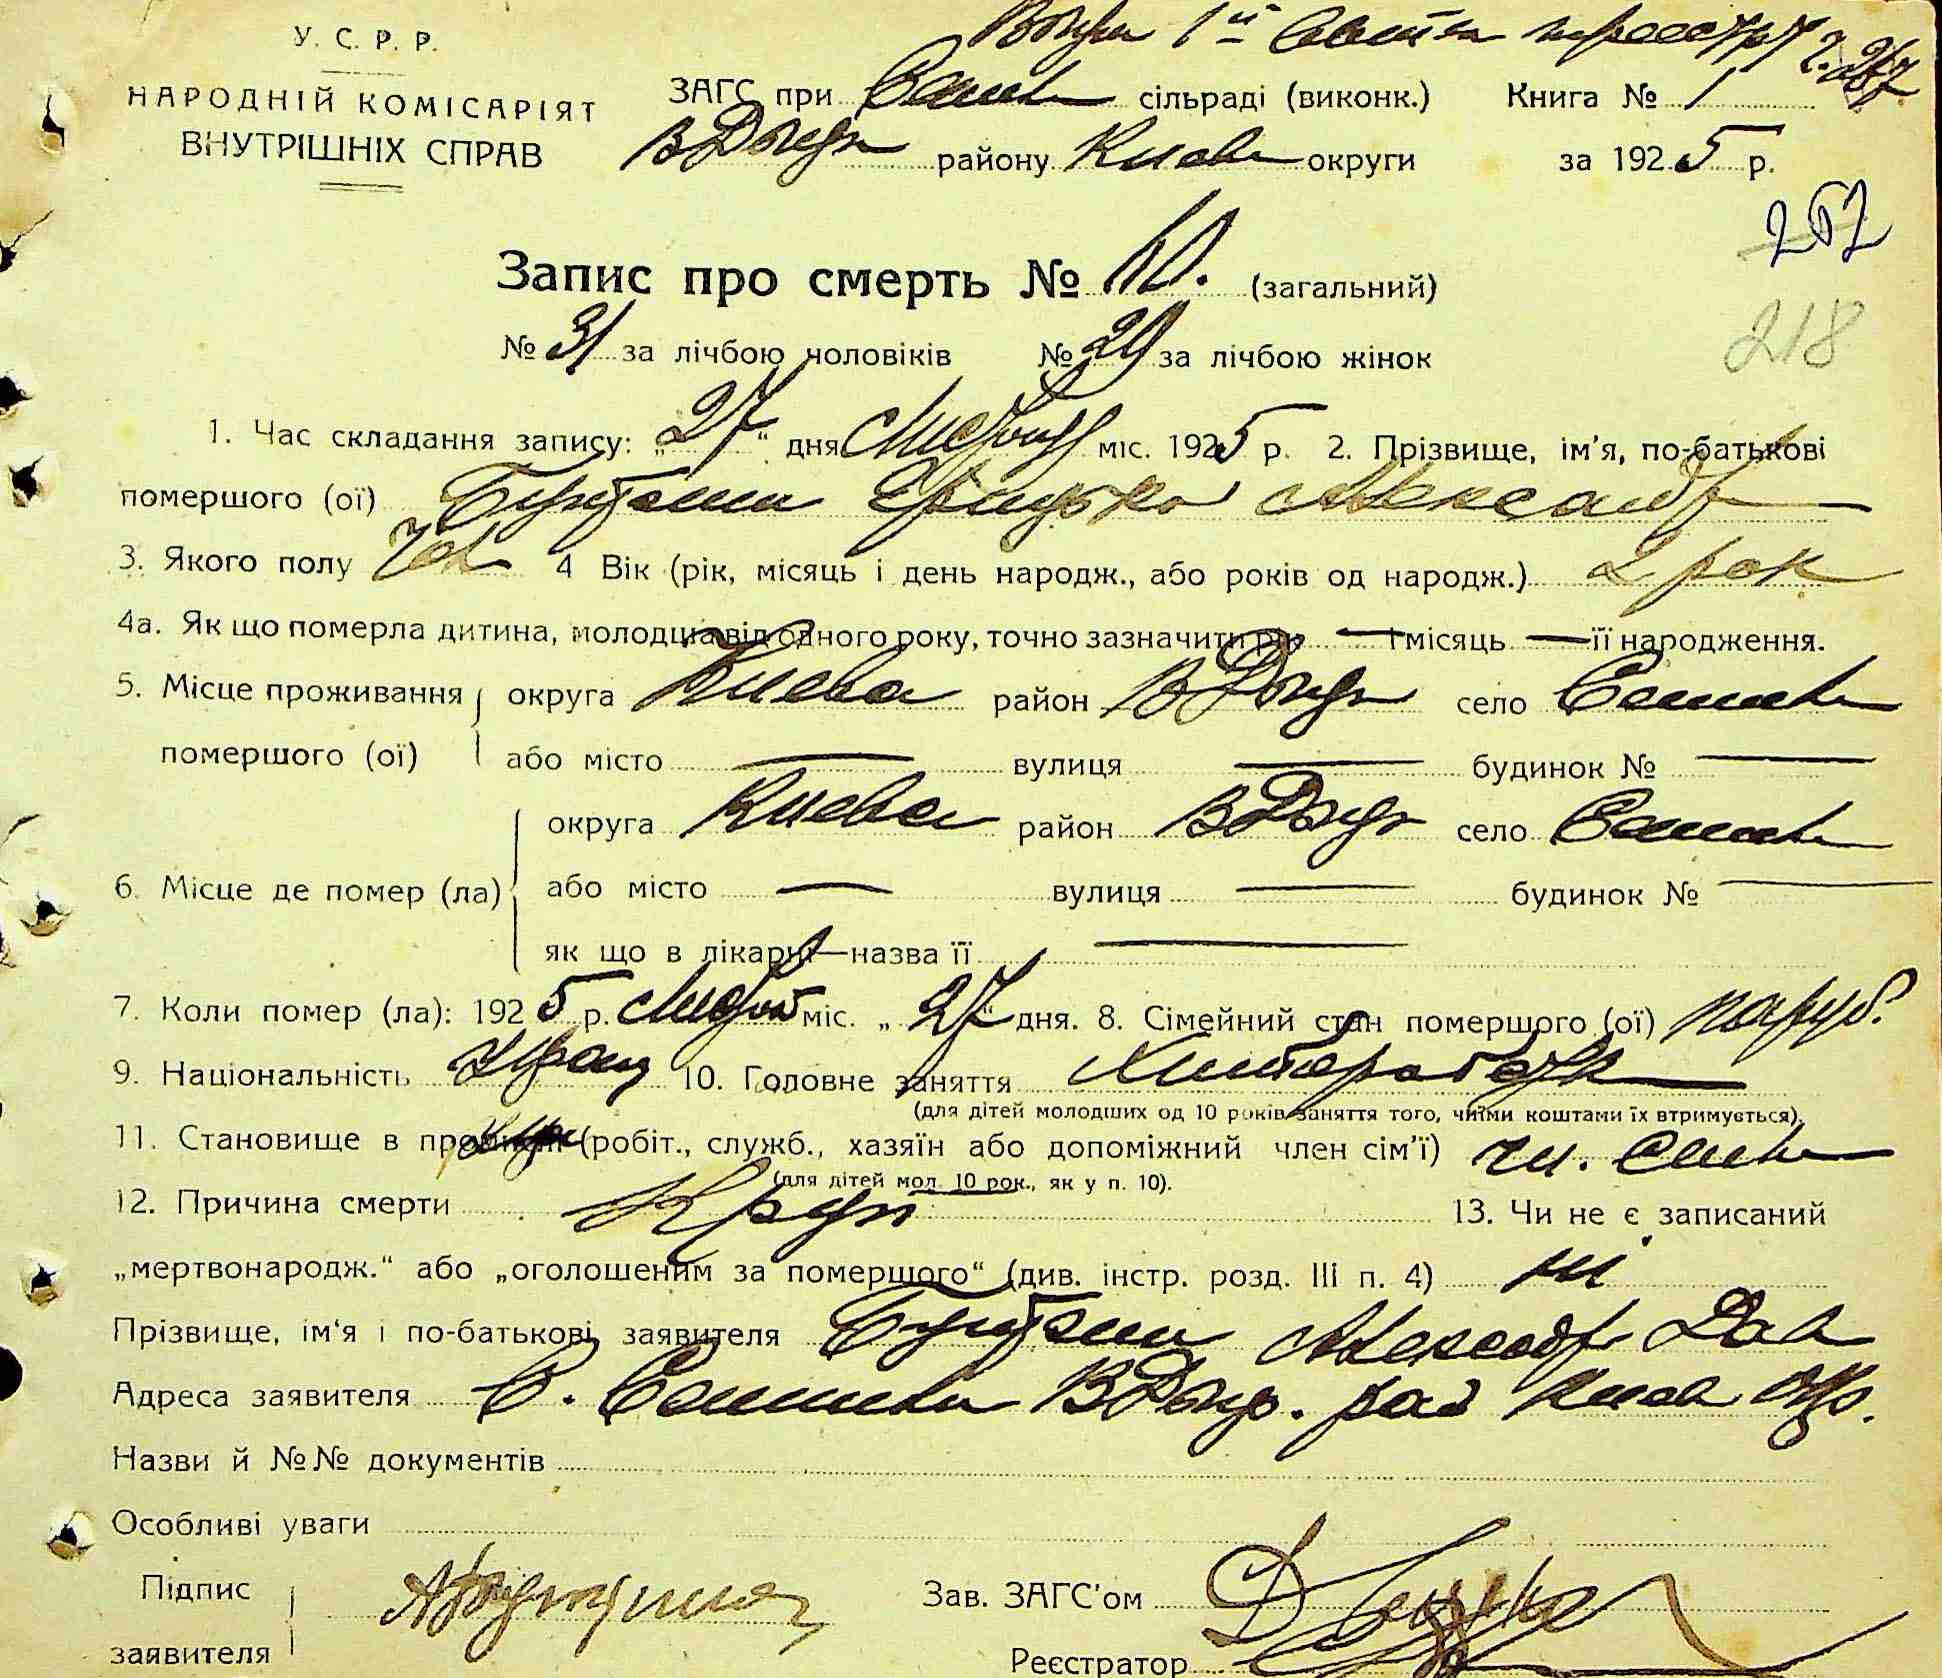 У. С. Р. Р.
НАРОДНІЙ КОМІСАРІЯТ
ВНУТРІШНІХ СПРАВ
ЗАГС при сільраді (виконк.) Книга № 1
району Києв округи за 1925 р.
262
Запис про смерть № 60. (загальний)
218
№ 31 за лічбою чоловіків № 29 за лічбою жінок
1. Час складання запису: „27“ дня міс. 1925 р. 2. Прізвище, ім'я, по-батькові
помершого (ої) Грицько Александр
3. Якого полу Чол 4 Вік (рік, місяць і день народж., або років од народж.) 2 рок
4а. Як що померла дитина, молодша від одного року, точно зазначити рік — і місяць — її народження.
5. Місце проживання помершого (ої) округа Киева район ВДыр село
або місто — вулиця — будинок № —
6. Місце де помер (ла) округа Киева район ВДыр село
або місто — вулиця — будинок № —
як що в лікарні—назва її —
7. Коли помер (ла): 1925 р. міс. „27“ дня. 8. Сімейний стан помершого (ої) паруб.
9. Національність Укра 10. Головне заняття
(для дітей молодших од 10 років заняття того, чиїми коштами їх втримується).
11. Становище в промислі (робіт., служб., хазяїн або допоміжний член сім'ї) чл. сим
(для дітей мол. 10 рок., як у п. 10).
12. Причина смерти Круп 13. Чи не є записаний
„мертвонародж.“ або „оголошеним за помершого“ (див. інстр. розд. III п. 4) ні
Прізвище, ім'я і по-батькові заявителя Александр Дав
Адреса заявителя С. ВДыр. рай Киев окр.
Назви й №№ документів
Особливі уваги
Підпис заявителя
Зав. ЗАГС'ом
Реєстратор